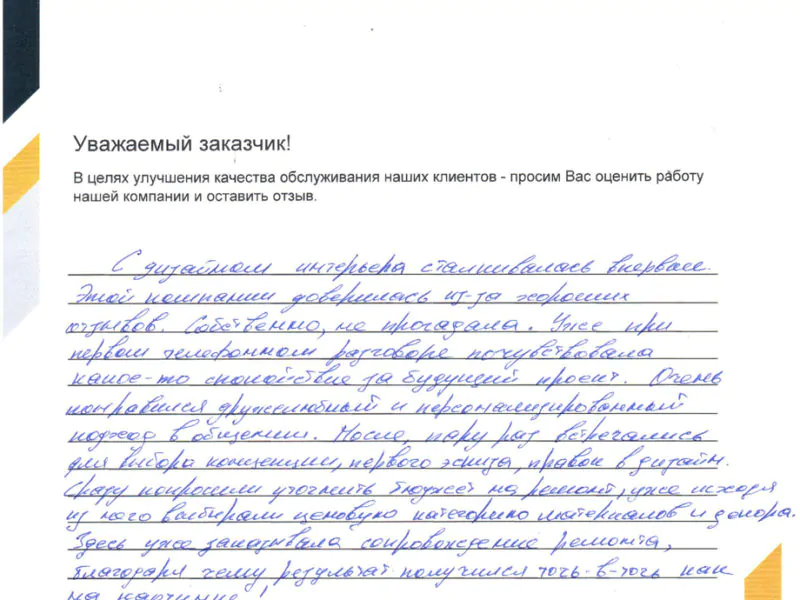 Уважаемый заказчик!
В целях улучшения качества обслуживания наших клиентов - просим Вас оценить работу
нашей компании и оставить отзыв.
С дизайном интерьера сталкивалась впервые.
Этой компании доверилась из-за хороших
отзывов. Собственно, не прогадала. Уже при
первом телефонном разговоре почувствовала
какое-то спокойствие за будущий проект. Очень
понравился дружелюбный и персонализированный
подход в общении. После, пару раз встречались
для выбора концепции, первого эскиза, правок в дизайн.
Сразу попросили уточнить бюджет на ремонт, уже исходя
из него выбирали ценовую категорию материалов и декора.
Здесь уже заказывала сопровождение ремонта,
благодаря чему результат получился точь-в-точь как
на картинке!